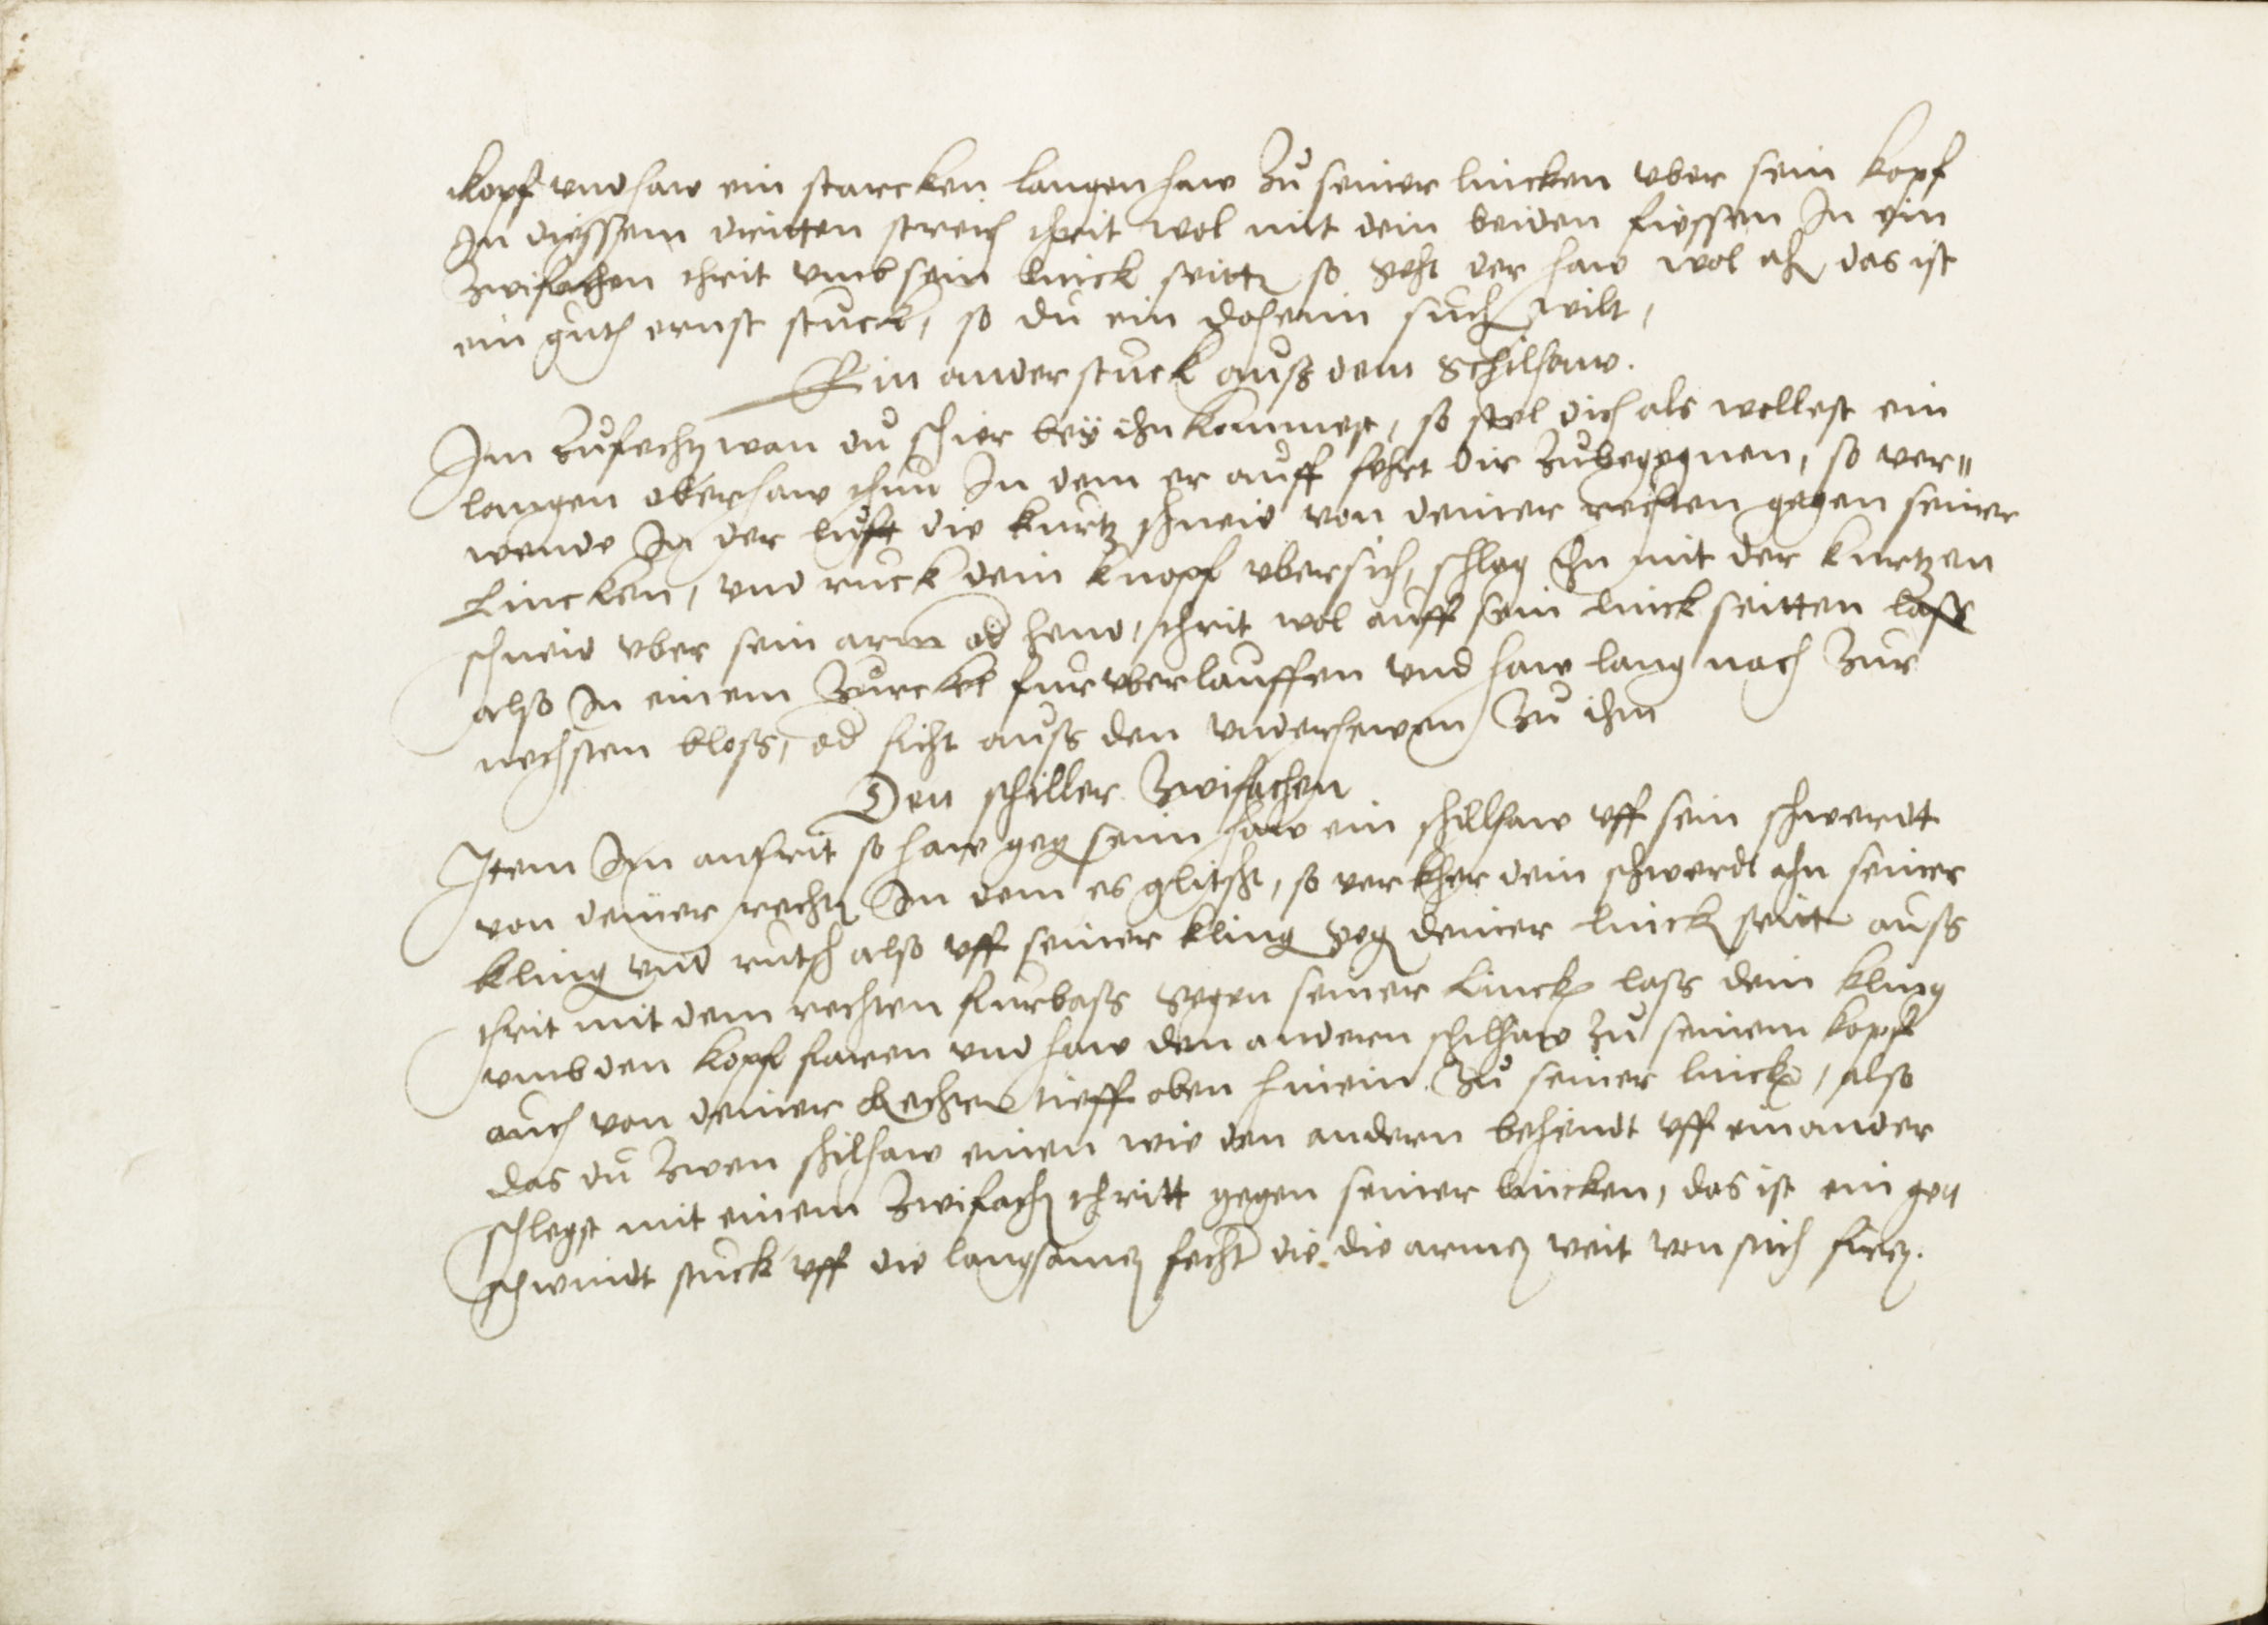 kopf vnd haw ein starcken langen haw zu seiner lincken vber sein kopf
In diessem dritten streich thrit wol mit dein beiden fiessen In ein
zwifachen thrit vmb sein linck seitten so geht der haw wol ahn das ist
ein guth ernst stuck, so du ein dahenn such wilt,
Ein ander stuck auß dem Schilhaw.
Im zufechten wan du schier bey ihn kommest, so stel dich als wollest ein
langen oberhaw thun In dem er auff fehrt dir zubegegnen, so ver=
wende In der lufft die kurtz schneid von deiner rechten gegen seiner
Lincken, vnd ruck dein knopf vbersich, schlag ihn mit der kurtzen
schneid vber sein arm od hend, thrit wol auff sein linck seitten lass
also In einem zurckel furvberlauffen vnd haw lang nach zur
nechsten bloß, od ficht auß den vnderhewen zu ihm
Den schiller zwifachen
Item Im anthrit so haw geg seim haw ein schillhaw vff sein schwerdt
von deiner rechten In dem es glitscht, so verkher dein schwerdt ahn seiner
kling vnd rutsch also vff seiner kling geg deiner linck seitten auß
thrit mit dem rechten furbaß gegen seiner Lincken lass dein kling
vmb den kopf faren vnd haw den andern schilhaw zu seinem kopf
auch von deiner Rechten tieff oben hinein zu seiner lincken, also
das du zwen schilhaw einen wie den andern behendt vff einander
schlegst mit einem zwifachen thritt gegen seiner lincken, das ist ein ge=
schwindt stuck vff die langsamen fechter die die armen weit von sich firen.